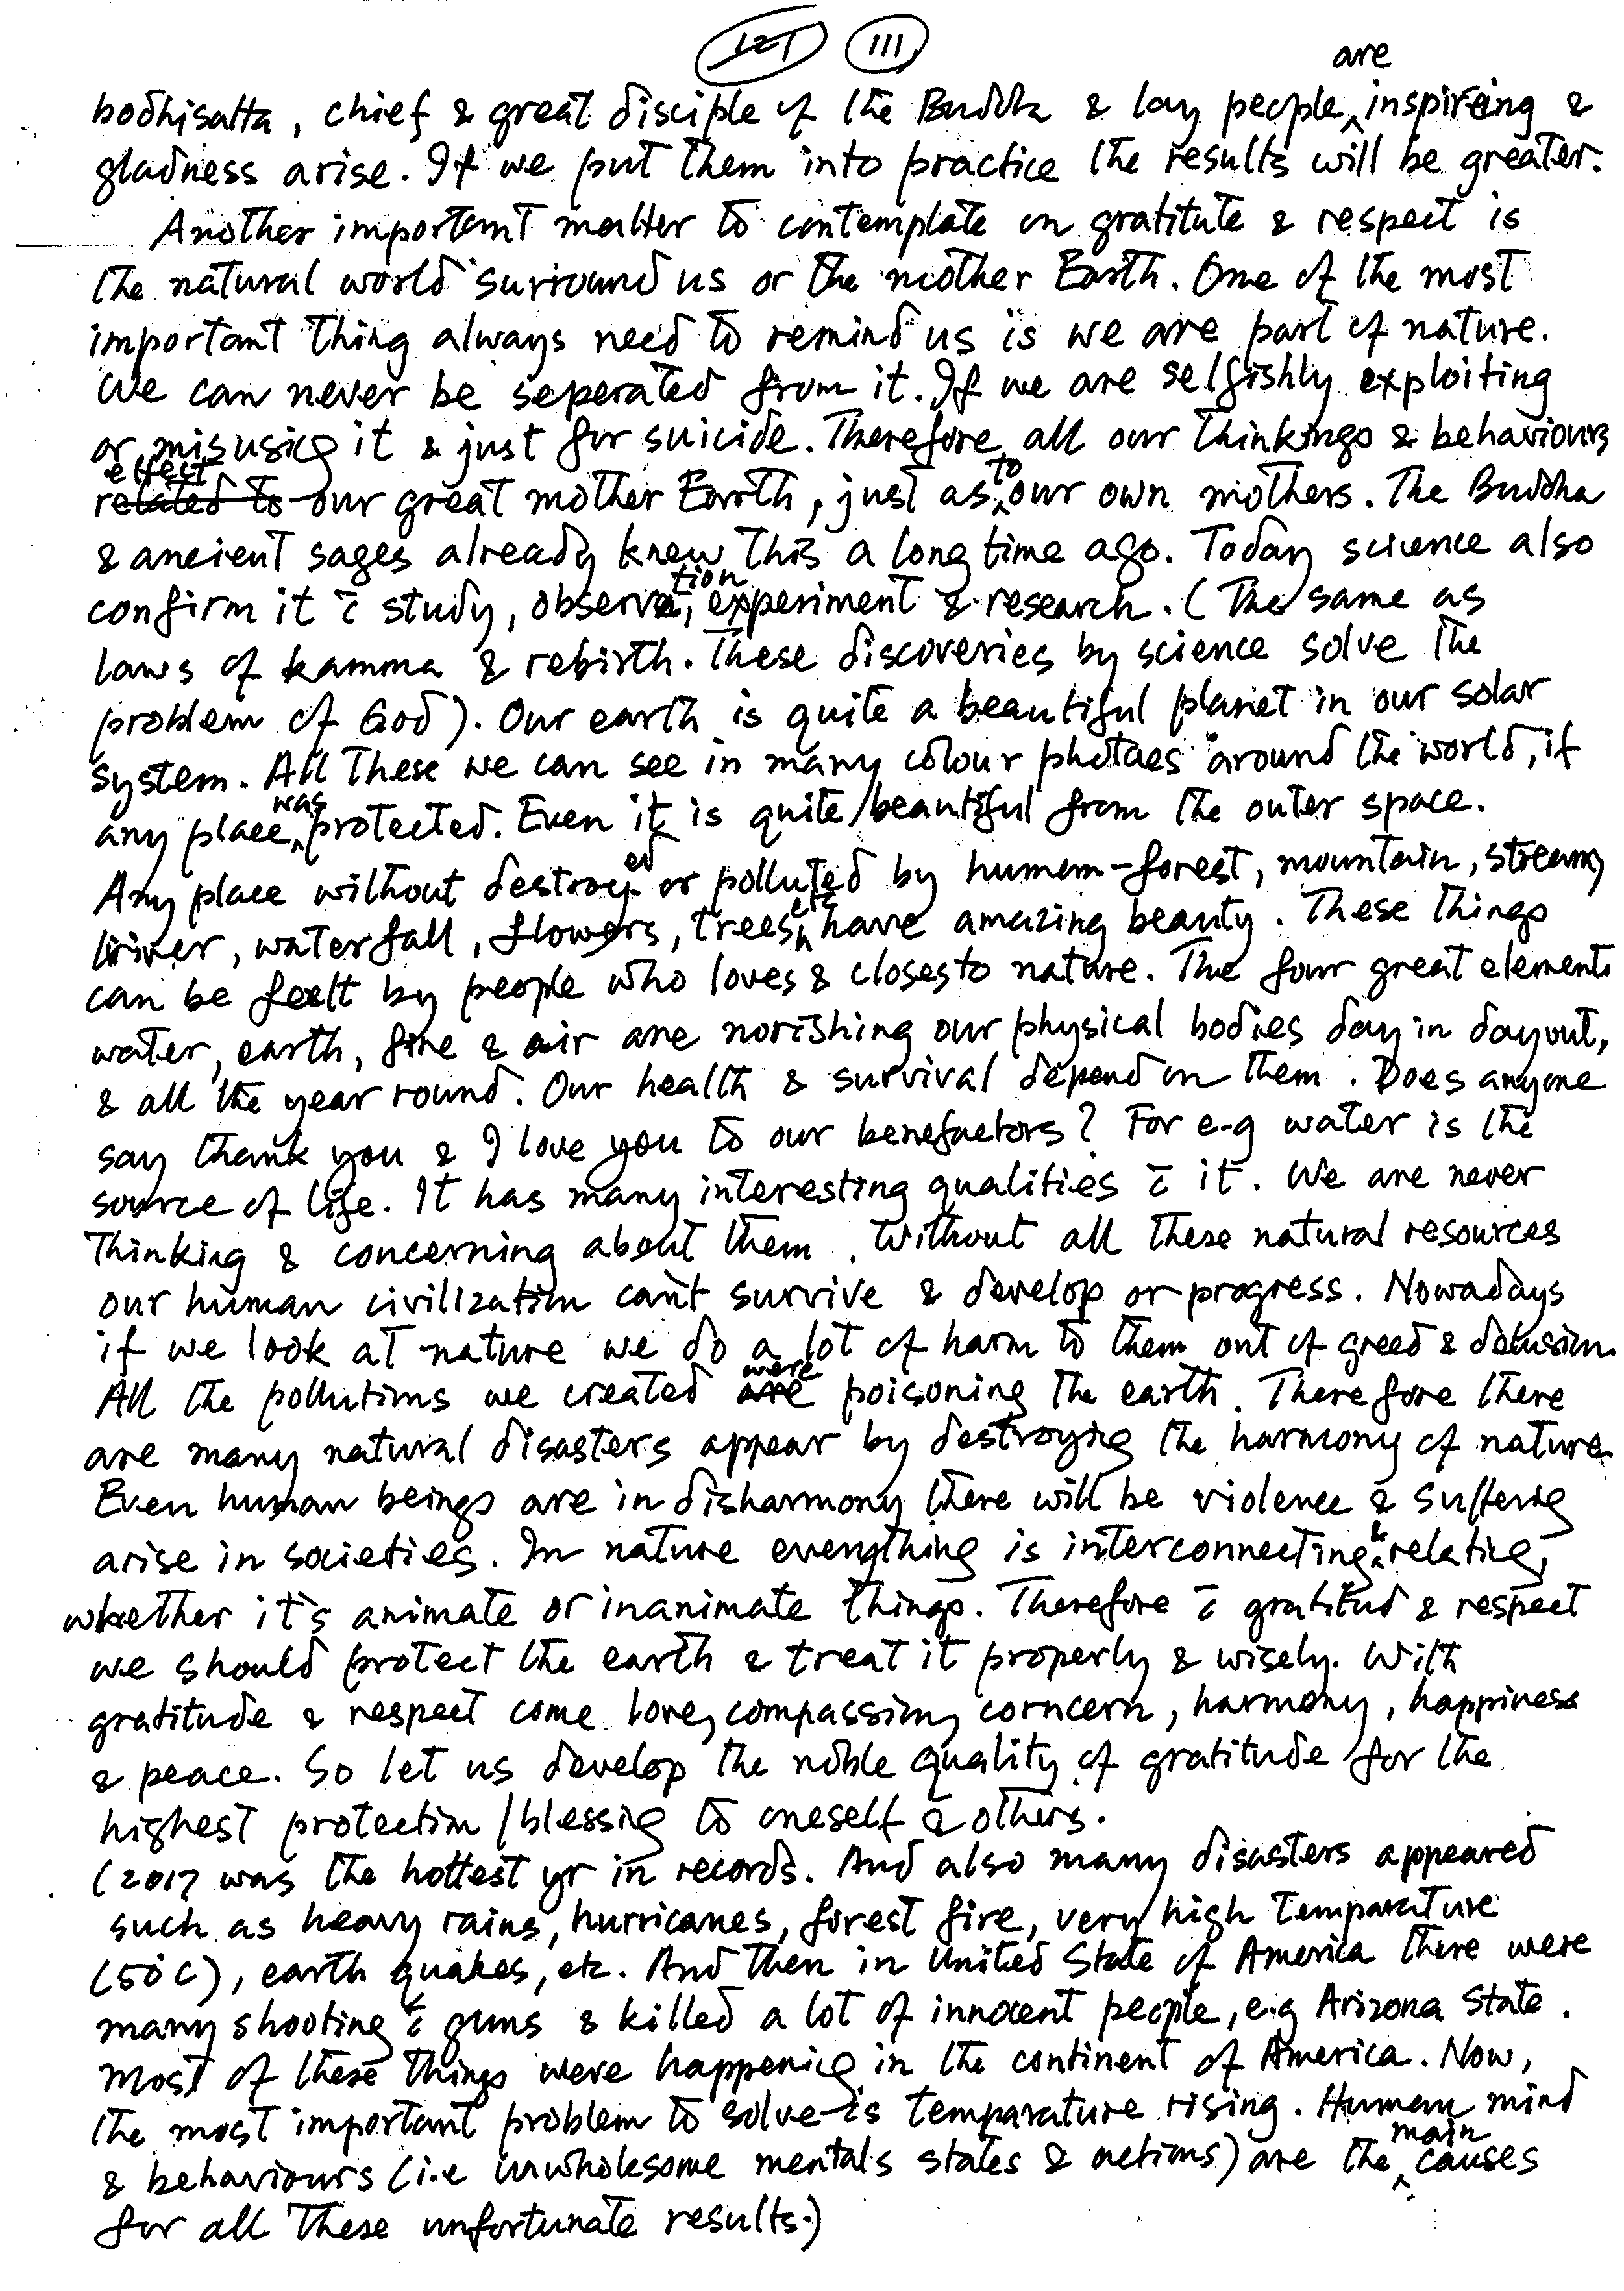 121 111
bodhisatta, chief & great disciple of the Buddha & lay people are inspiring &
gladness arise. If we put them into practice the results will be greater.
Another important matter to contemplate on gratitute & respect is
the natural world surround us or the mother Earth. One of the most
important thing always need to remind us is we are part of nature.
We can never be seperated from it. If we are selfishly exploiting
or misusing it & just for suicide. Therefore, all our thinkings & behaviours
related to effect our great mother Earth, just as to our own mothers. The Buddha
& ancient sages already knew this a long time ago. Today science also
confirm it c̄ study, observation, experiment & research. (The same as
laws of kamma & rebirth. These discoveries by science solve the
problem of God). Our earth is quite a beautiful planet in our solar
system. All these we can see in many colour photoes around the world, if
any place was protected. Even it is quite beautiful from the outer space.
Any place without destroyed or polluted by human-forest, mountain, stream,
river, waterfall, flowers, trees etc have amazing beauty. These things
can be felt by people who loves & closes to nature. The four great elements
water, earth, fire & air are norishing our physical bodies day in day out,
& all the year round. Our health & survival depend on them. Does anyone
say thank you & I love you to our benefactors? For e-g water is the
source of life. It has many interesting qualities c̄ it. We are never
thinking & concerning about them. Without all these natural resources
our human civilization can't survive & develop or progress. Nowadays
if we look at nature we do a lot of harm to them out of greed & delusion.
All the pollutions we created are were poisoning the earth. Therefore there
are many natural disasters appear by destroying the harmony of nature.
Even human beings are in disharmony there will be violence & suffering
arise in societies. In nature everything is interconnecting & relating,
whether it's animate or inanimate things. Therefore c̄ gratitud & respect
we should protect the earth & treat it properly & wisely. With
gratitude & respect come love, compassion, corncern, harmony, happiness
& peace. So let us develop the noble quality of gratitude for the
highest protection/blessing to oneself & others.
(2017 was the hottest yr in records. And also many disasters appeared
such as heavy rains, hurricanes, forest fire, very high temparature
(50°C), earth quakes, etc. And then in United State of America there were
many shooting c̄ guns & killed a lot of innocent people, e.g Arizona State.
Most of these things were happening in the continent of America. Now,
the most important problem to solve is temparature rising. Human mind
& behaviours (i.e unwholesome mentals states & actions) are the main causes
for all these unfortunate results.)